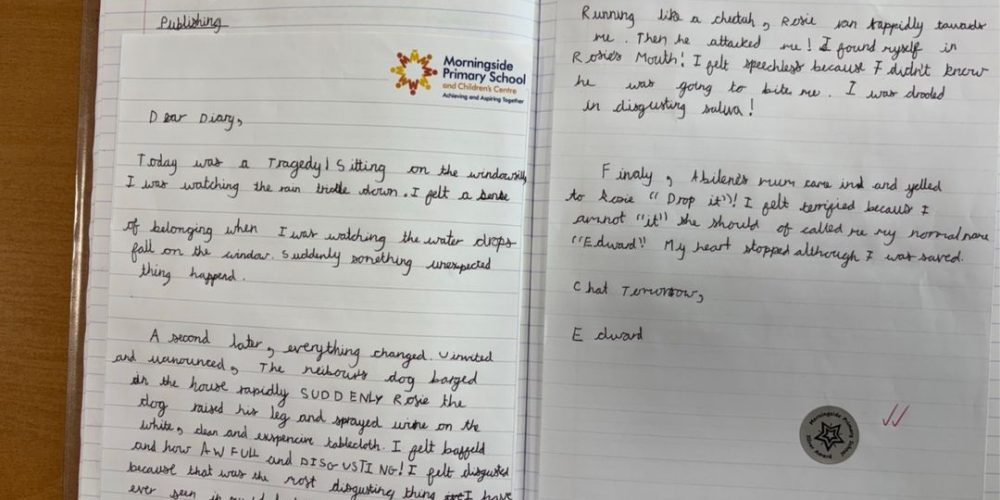 Publishing
Morningside
Primary School
and Children's Centre
Achieving and Aspiring Together
Dear Diary,
Today was a Tragedy! Sitting on the windowsill,
I was watching the rain down. I felt a sense
of belonging when I was watching the water drops
fall on the window. Suddenly something unexpected
thing happend.
A second later, everything changed. Uinvited
and uanounced, The neibours dog barged
in the house rapidly SUDDENLY Rosie the
dog raised his leg and sprayed urine on the
white, clean and expencive tablecloth. I felt baffeld
and how AWFULL and DISGUSTING! I felt disgusted
because that was the most disgusting thing I have
ever seen in
Running like a cheetah, Rosie ran rappidly towards
me. Then he attacked me! I found myself in
Rosie's Mouth! I felt speechless because I didn't know
he was going to bite me. I was drooled
in disgusting saliva!
Finaly, Abilene's mum came and yelled
to Rosie "Drop it"! I felt terrified becaus I
amnot "it" she should of called me my normal name
"Edward" My heart stopped although I was saved.
Chat Tomorrow,
Edward
Morningside Primary School